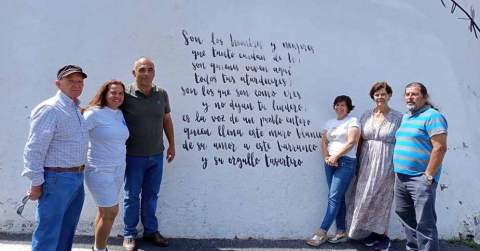 Son los hombres y mujeres
que tanto cuidan de ti
son quienes viven aquí
todos tus atardeceres
son los que son como eres
y no dejan tu lindero
es la voz de un pueblo entero
quien llena este muro blanco
de su amor a este barranco
y su orgullo